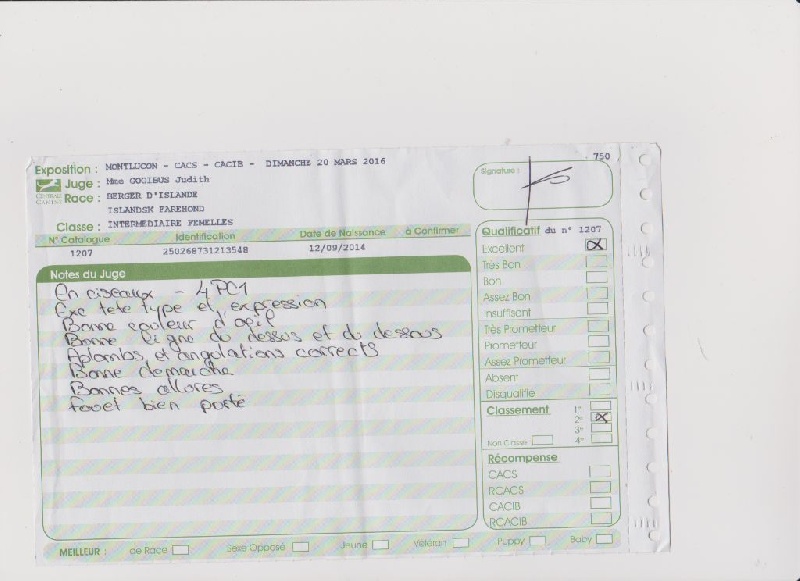 750
Exposition : MONTLUCON - CACS - CACIB - DIMANCHE 20 MARS 2016
Juge : Mme GOGIBUS Judith
Race : BERGER D'ISLANDE
ISLANDSK FAREHOND
Classe : INTERMEDIAIRE FEMELLES
Signature :
N° Catalogue Identification Date de Naissance à Confirmer
1207 250268731213548 12/09/2014
Notes du Juge
En ciseaux - 4 PC1
Exc tete type et expression
Bonne couleur d'oeil
Bonne ligne du dessus et du dessous
Aplombs et angulations corrects
Bonne demarche
Bonnes allures
fouet bien porté
Qualificatif du n° 1207
Excellent
Très Bon
Bon
Assez Bon
Insuffisant
Très Prometteur
Prometteur
Assez Prometteur
Absent
Disqualifié
Classement 1°
2°
3°
Non Classé 4°
Récompense
CACS
RCACS
CACIB
RCACIB
MEILLEUR : de Race Sexe Opposé Jeune Vétéran Puppy Baby